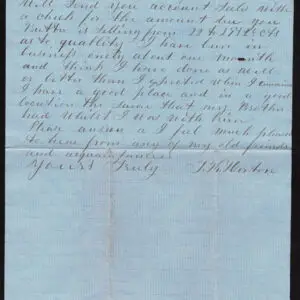 Will Send you account Sales with
a check for the amount due you
Butter is Selling from 22 to
as to quality I have been in
business only about one month
and think I have done as well
or better than I expected when I
I have a good place and in a good
location the Same that my Brother
had Whilst I was with him
Please answer a I feel much pleased
to hear from any of my old friends
and acquaintances
Yours Truly